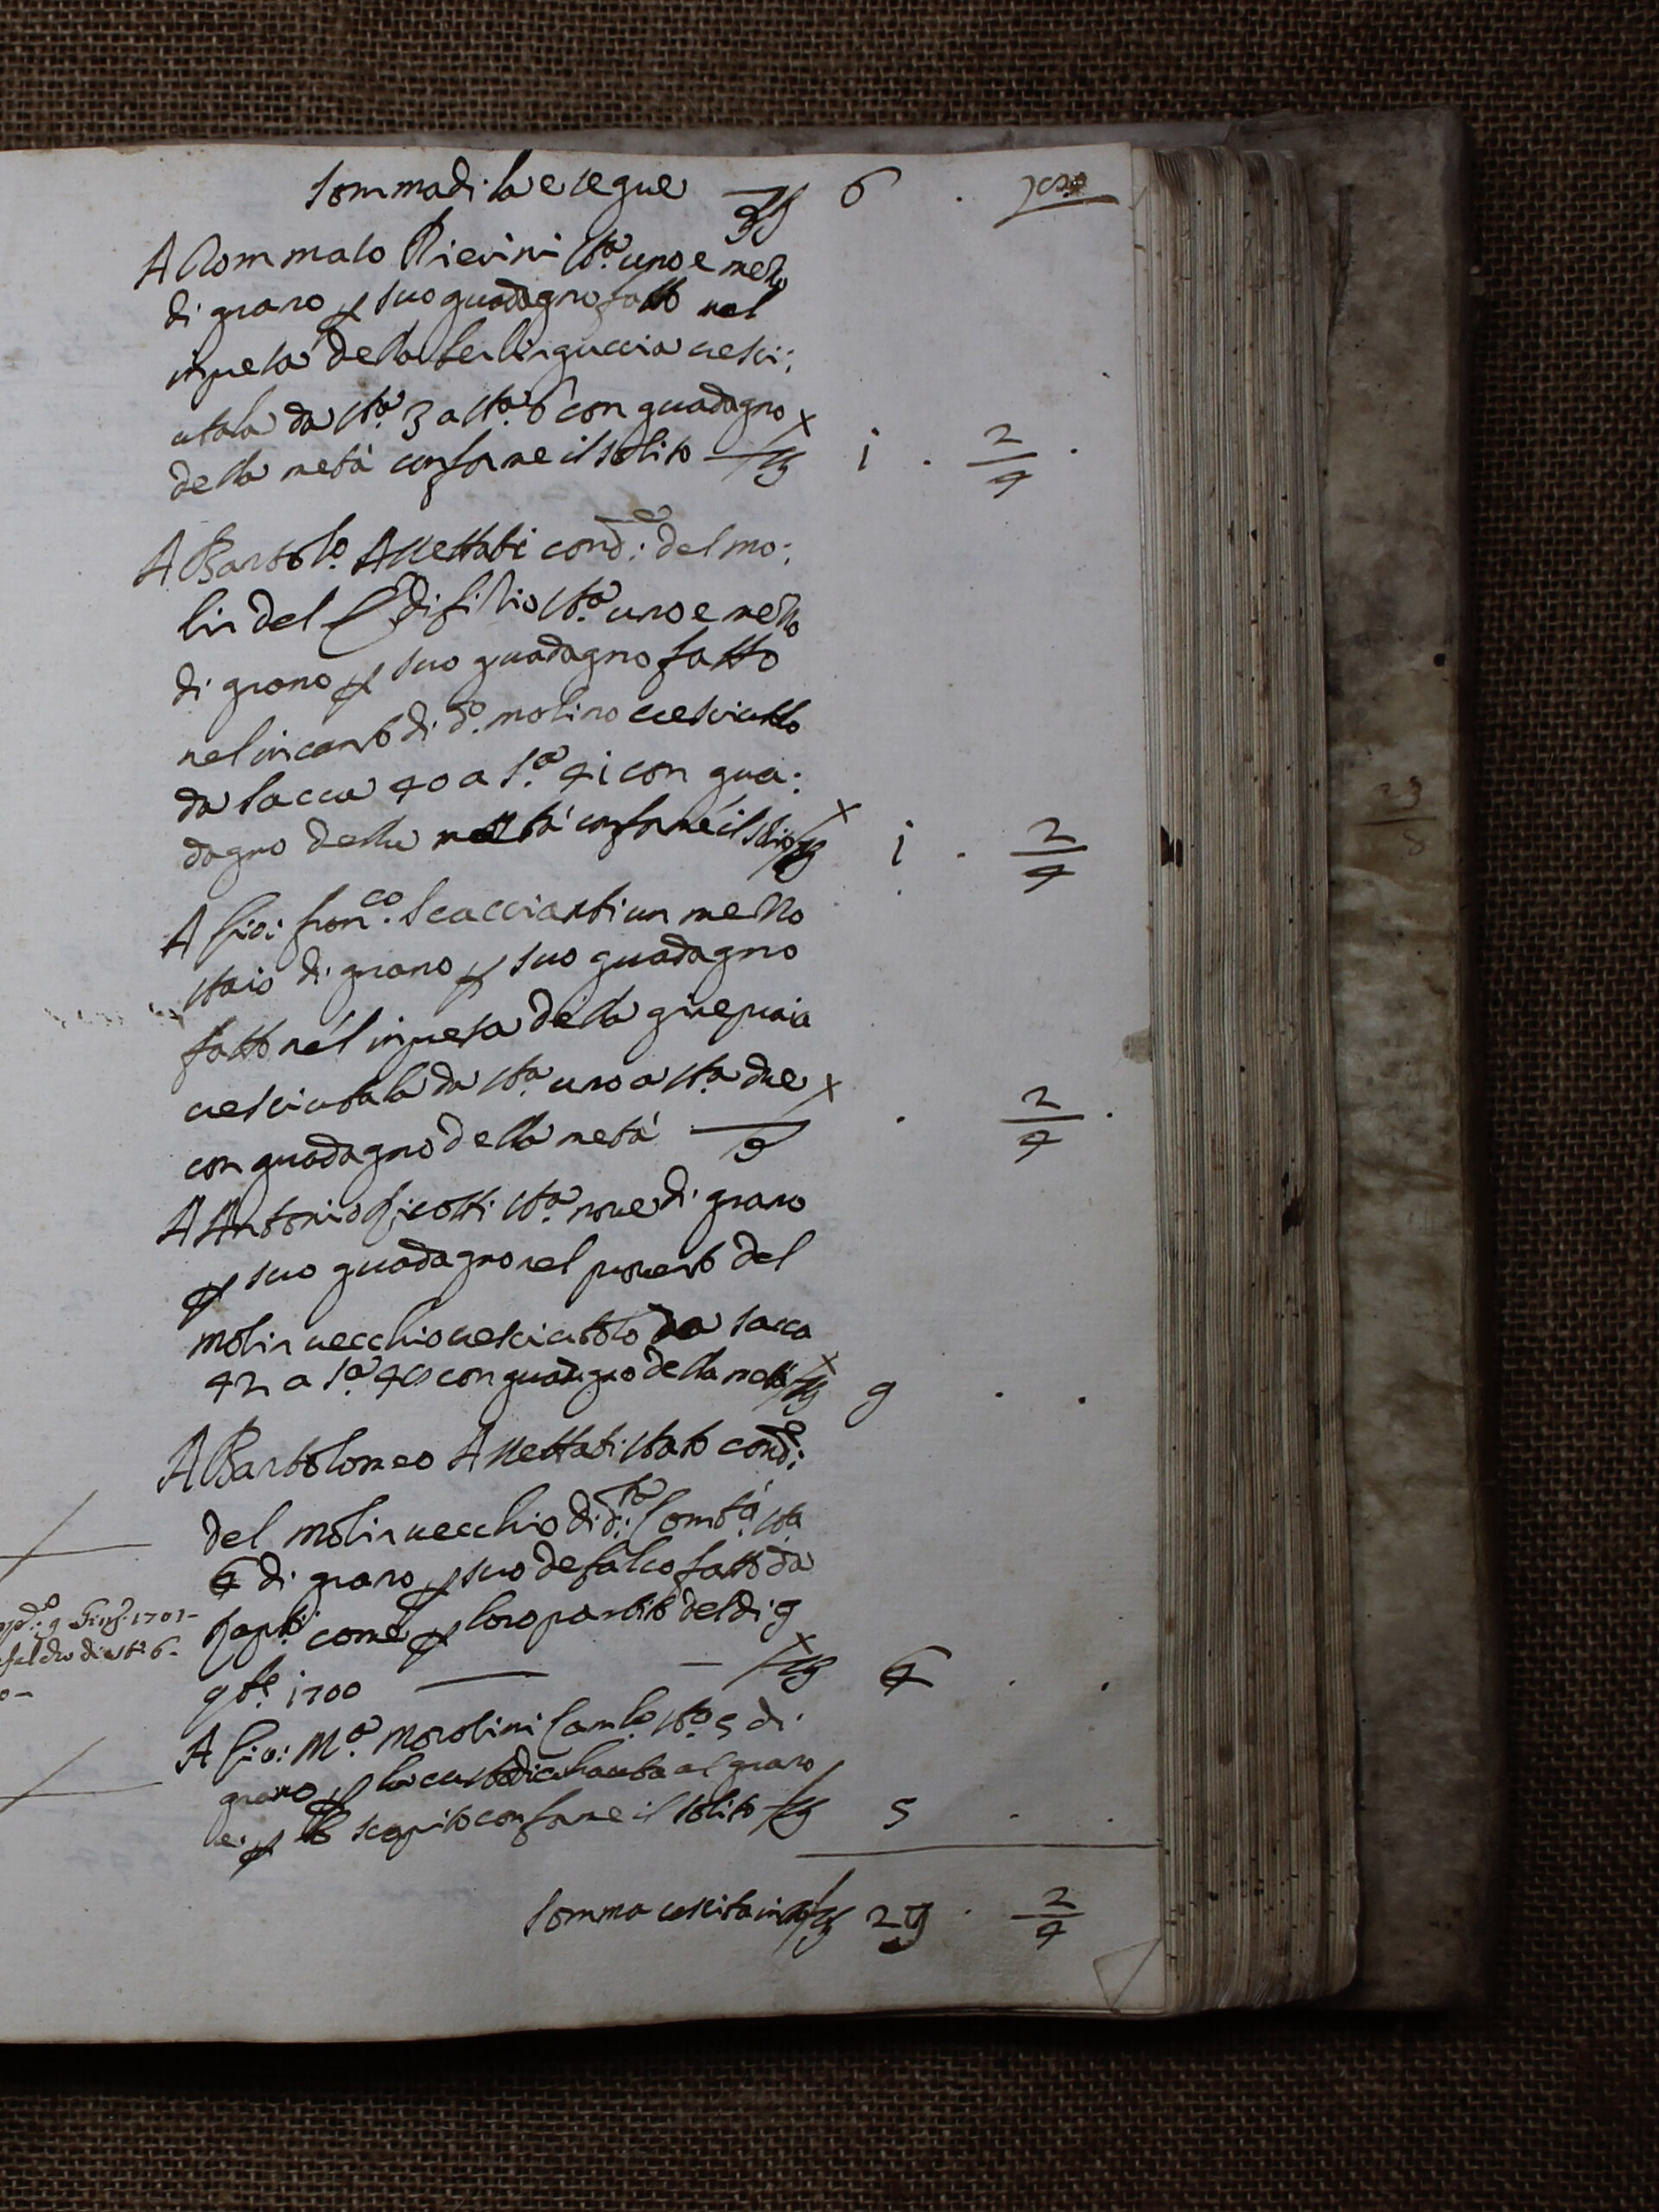 Somma di la e segue 6 .
A Rommalo Pierini sta. uno e mezzo
di grano p suo guadagno fatto nel
impresa della berlinguccia cresci:
utala da sta. 3 a sta. 6 con guadagno
della metà conforme il solito i . 2/4 .
A Bartolo. Allettati cond.e del mo:
lin del Edifizio sta. uno e mezzo
di grano p suo guadagno fatto
nel incanto di do. molino cresciutto
da sacca 40 a Sa. 41 con gua:
dagno della mettà conforme il solito i . 2/4
A Gio: Franco. Scaccianti un mezzo
staio di grano p suo guadagno
fatto nel impresa della
cresciutala da sta. uno a sta. due
con guadagno della metà . 2/4 .
A Antonio sta. nove di grano
p suo guadagno nel provento del
molin vecchio cresciuttolo da sacca
42 a Sa. con guadagno della mettà 9 . .
A Bartolomeo Allettati stato cond.e
del molin vecchio di d.ta Comtà. sta.
6 di grano p suo defalco fatto da
come p loro partito del di 9
9bre. 1700 6 . .
A Gio: Ma. Morolini Camlo. sta. 5 di
grano p la custodia hauta al grano
e p lo scapito conforme il solito 5 . .
Somma uscita in 29 . 2/4
9 Giug. 1701-
di sta. 6-